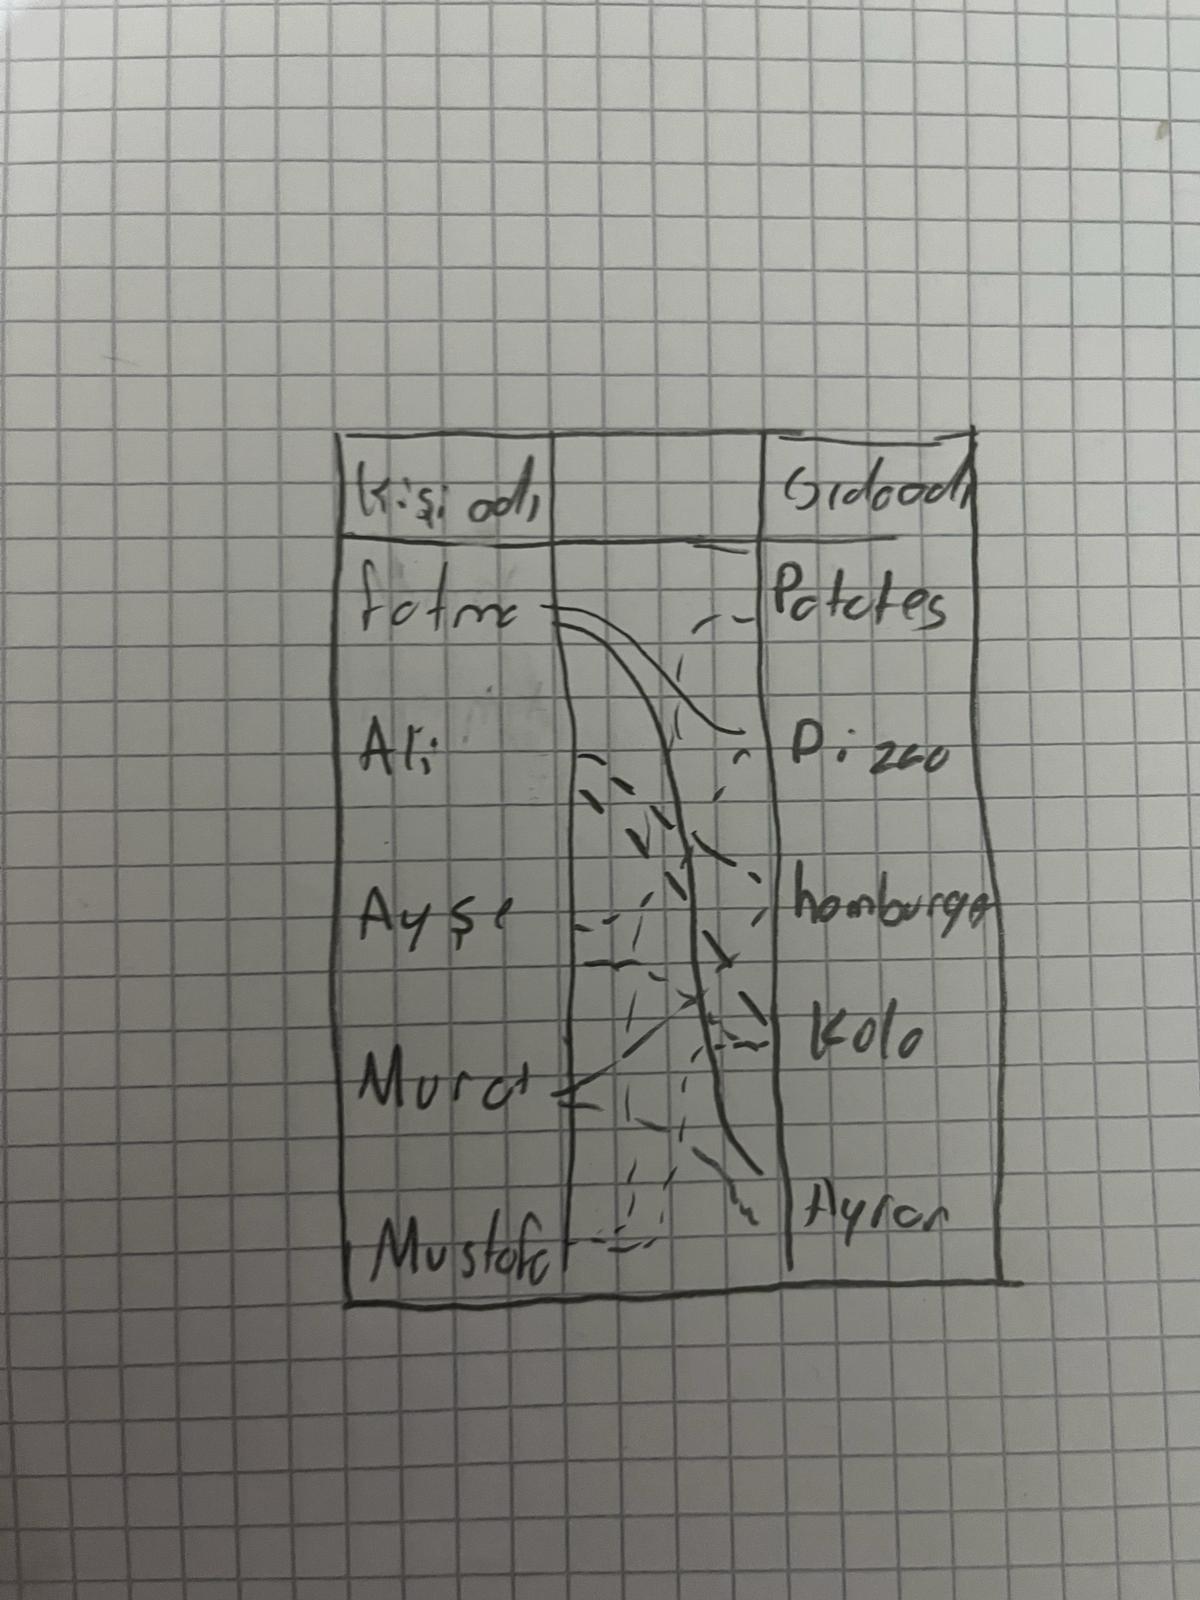 Kişi adı Gıdaadı
fatma Patates
Ali Pizza
Ayşe hamburger
Murat Kola
Mustafa Ayran